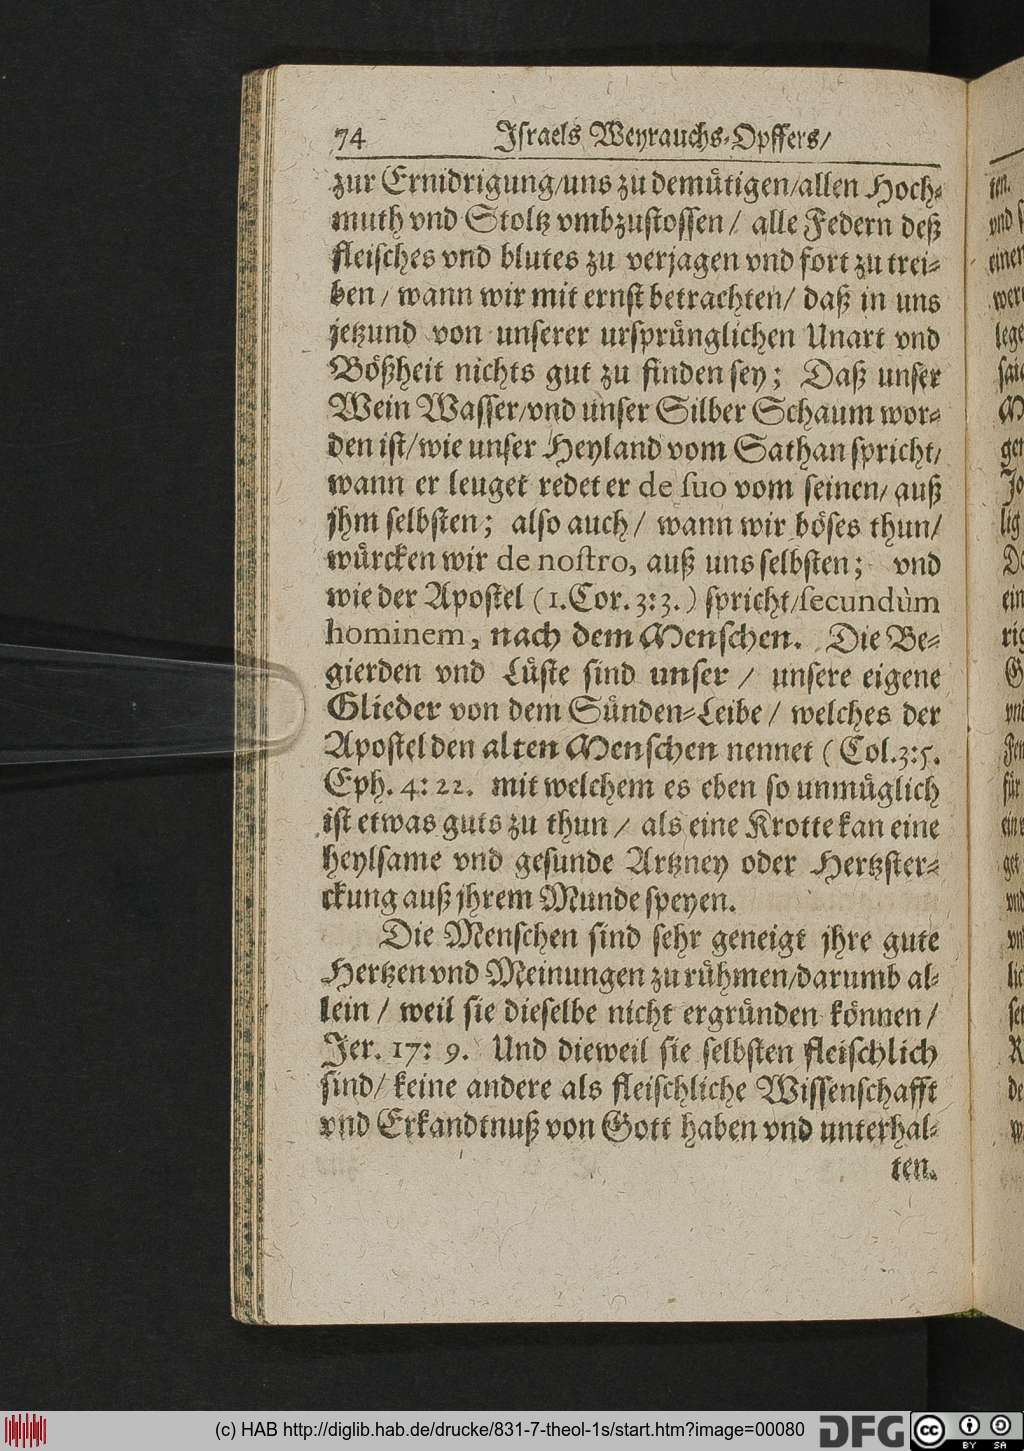 74 Israels Weyrauchs-Opffers/
zur Ernidrigung/uns zu demütigen/allen Hoch-
muth vnd Stoltz vmbzustossen/ alle Federn deß
fleisches vnd blutes zu verjagen vnd fort zu trei-
ben/ wann wir mit ernst betrachten/ daß in uns
jetzund von unserer ursprünglichen Unart vnd
Bößheit nichts gut zu finden sey; Daß unser
Wein Wasser/vnd unser Silber Schaum wor-
den ist/wie unser Heyland vom Sathan spricht/
wann er leuget redet er de suo vom seinen/ auß
jhm selbsten; also auch/ wann wir böses thun/
würcken wir de nostro, auß uns selbsten; vnd
wie der Apostel (1.Cor.3:3.) spricht/secundùm
hominem, nach dem Menschen. Die Be-
gierden vnd Lüste sind unser/ unsere eigene
Glieder von dem Sünden-Leibe/ welches der
Apostel den alten Menschen nennet (Col.3:5.
Eph. 4:22. mit welchem es eben so unmüglich
ist etwas guts zu thun/ als eine Krotte kan eine
heylsame vnd gesunde Artzney oder Hertzster-
ckung auß jhrem Munde speyen.
Die Menschen sind sehr geneigt jhre gute
Hertzen vnd Meinungen zu rühmen/darumb al-
lein/ weil sie dieselbe nicht ergründen können/
Jer. 17: 9. Und dieweil sie selbsten fleischlich
sind/ keine andere als fleischliche Wissenschafft
vnd Erkandtnuß von Gott haben vnd unterhal-
ten.
(c) HAB http://diglib.hab.de/drucke/831-7-theol-1s/start.htm?image=00080 DFG cc BY SA